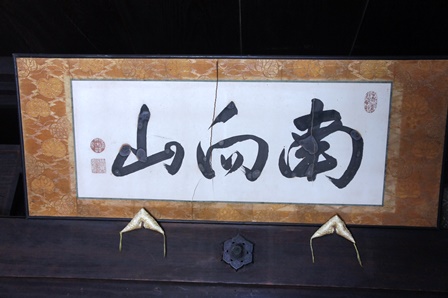 南向山